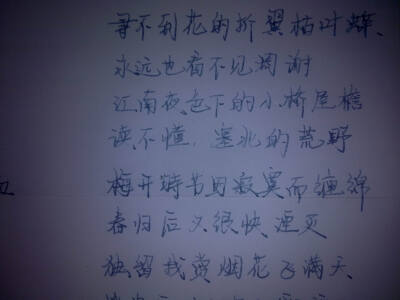 寻不到花的折翼枯叶蝶、
永远也看不见凋谢
江南夜色下的小桥屋檐
读不懂、塞北的荒野
梅开时节因寂寞而缠绵
春归后又很快湮灭
独留我赏烟花飞满天